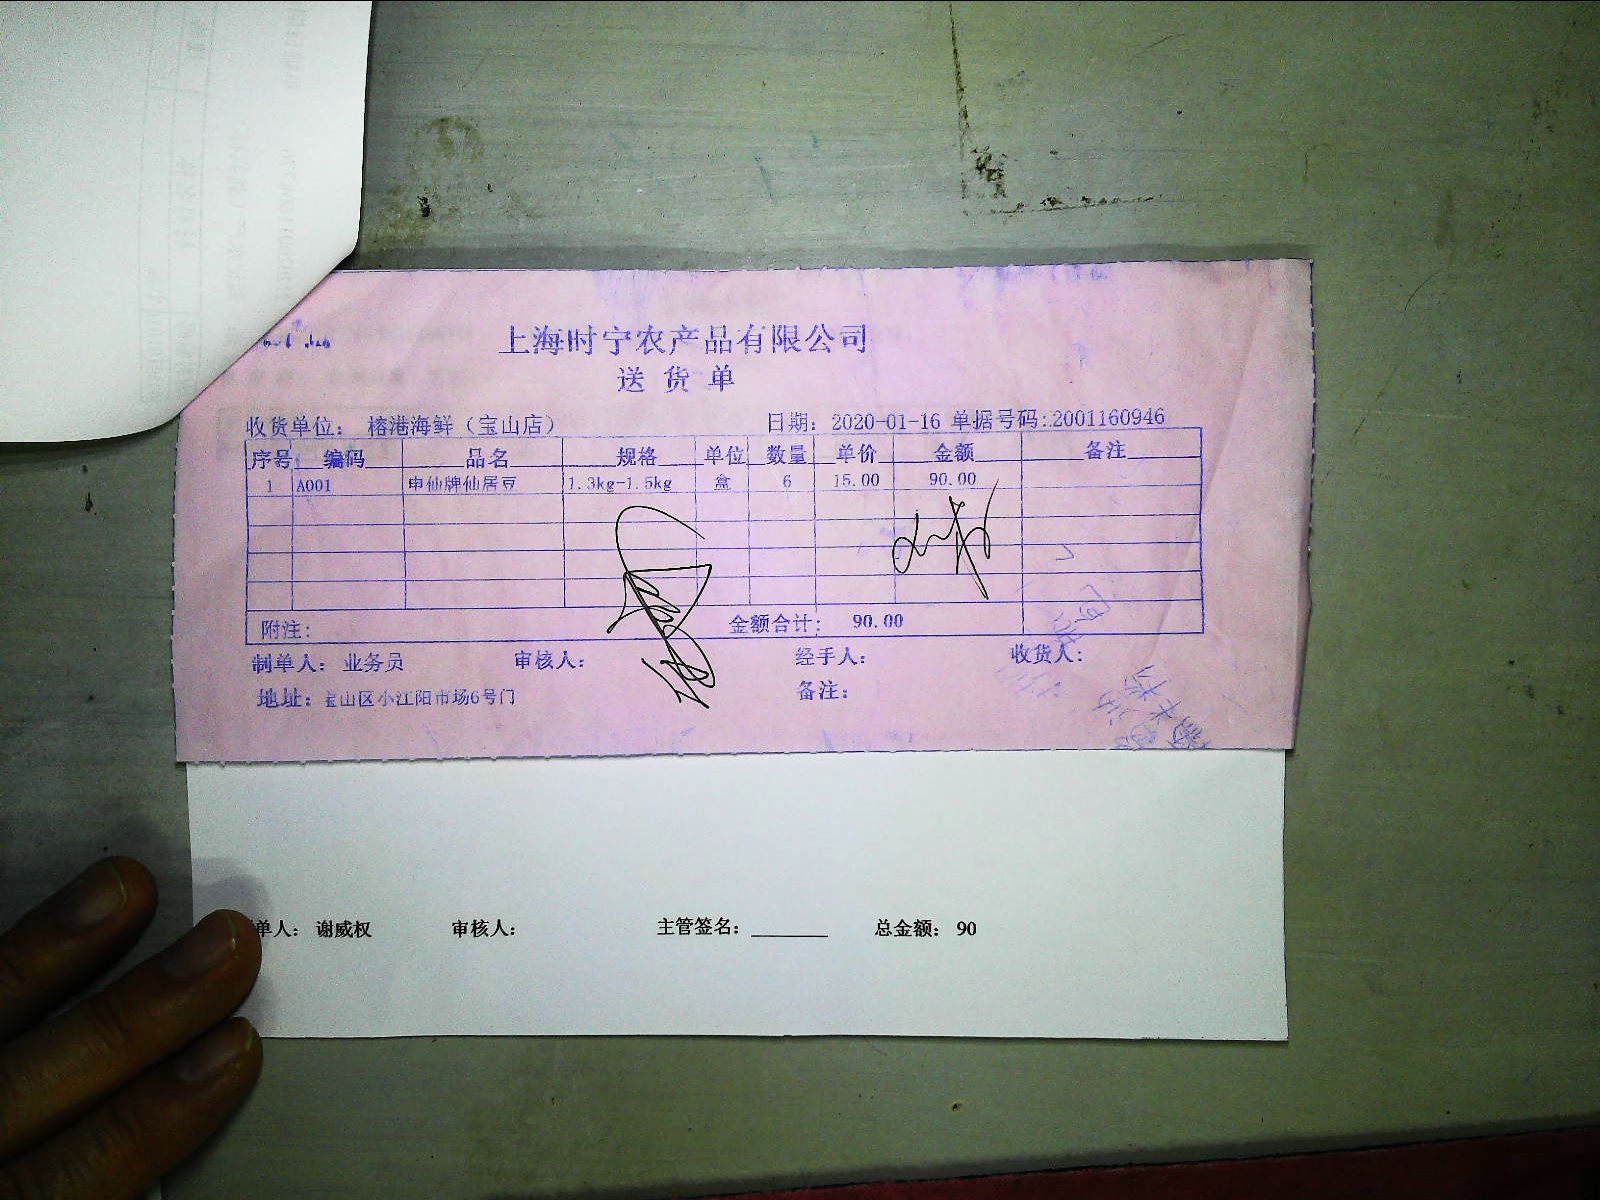 上海时宁农产品有限公司
送 货 单
收货单位： 榕港海鲜（宝山店） 日期： 2020-01-16 单据号码:2001160946
序号 编码 品名 规格 单位 数量 单价 金额 备注
1 A001 申仙牌仙居豆 1.3kg-1.5kg 盒 6 15.00 90.00
附注: 金额合计： 90.00
制单人： 业务员 审核人： 经手人： 收货人：
地址：宝山区小江阳市场6号门 备注：
单人： 谢威权 审核人： 主管签名：________ 总金额： 90